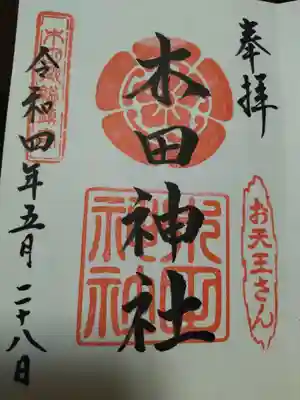 奉拝
木田神社
お天王さん
木田神社
令和四年五月二十八日